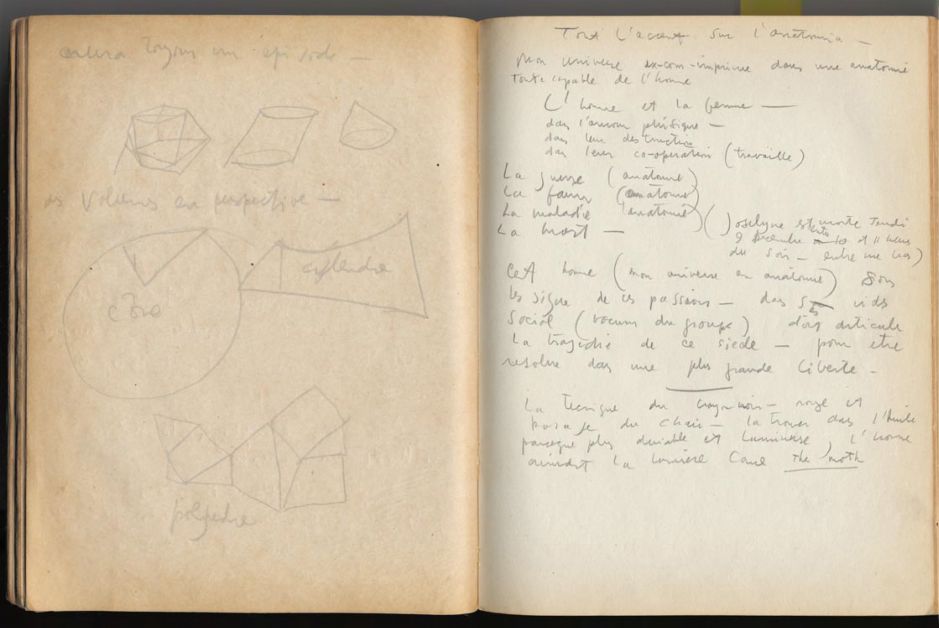 toujours un episode —
Volumes en perspective —
cône
cylendre
polyedre
Tout l'accent sur l'anatomia —
Mon universe ex-com-imprime dans une anatomie
toute capable de l'homme
L'homme et la femme —
dans l'amour phisique —
dans leur destruction
dans leur co-operation (travaille)
La guerre (anatomie)
La faim (anatomie)
La maladie (anatomie)
La mort — (Joselyne est morte
9 decembre 10 et 11 heures
du soir — entre
Cet homme (mon universe en anatomie) sous
les signe de ces passions — dans vide
Social (vacum du groupe) articule
La tragedie de ce siecle — pour etre
resolue dans une plus grande liberte —
La tecnique du crayon noir — rouge et
du chair — la trouver dans l'huile
parceque plus durable et lumineuse, l'homme
aimant la lumiere come the moth